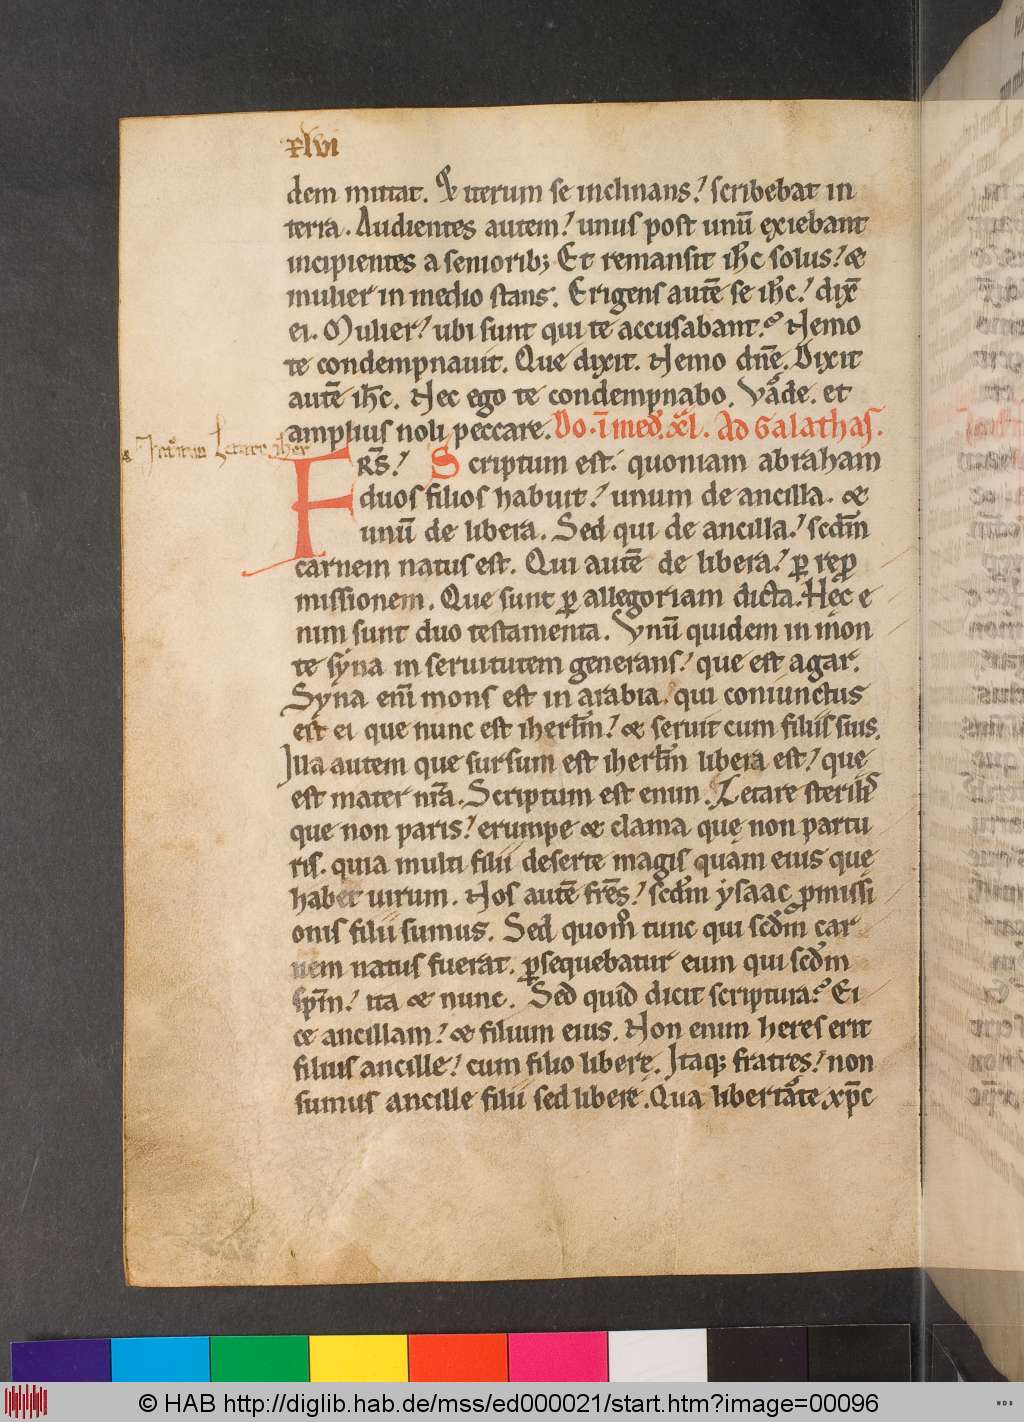 xlvi
dem mittat. Et iterum se inclinans! scribebat in
terra. Audientes autem! unus post unū exiebant
incipientes a seniorib; Et remansit ihc solus! &
mulier in medio stans. Erigens autē se ihc! dix̄
ei. Mulier! ubi sunt qui te accusabant? Nemo
te condempnauit. Que dixit. Nemo dn̄e. Dixit
autē ih̄c. Nec ego te condempnabo. Vade. et
amplius noli peccare. Do. ī med. xl. Ad Galathas.
Letare iher
FRS̄! Scriptum est: quoniam abraham
duos filios habuit! unum de ancilla. &
unū de libera. Sed qui de ancilla! scdm̄
carnem natus est. Qui autē de libera! ꝑ repꝛo
missionem. Que sunt ꝑ allegoriam dicta. Hec e
nim sunt duo testamenta. Vnū quidem in mon
te syna in seruitutem generans! que est agar.
Syna eni̅ mons est in arabia. qui coniunctus
est ei que nunc est iherlm̄! & seruit cum filiis suis.
Illa autem que sursum est iherlm̄ libera est! que
est mater nr̄a. Scriptum est enim. Letare sterilis
que non paris! erumpe & clama que non partu
ris. quia multi filii deserte magis quam eius que
habet uirum. Nos autē fr̄es! scdm̄ ysaac ꝓmissi
onis filii sumus. Sed quom̊ tunc qui scdm̄ car
nem natus fuerat. ꝑsequebatur eum qui scdm̄
spm̄! ita & nunc. Sed quid dicit scriptura? Ei
ce ancillam! & filium eius. Non enim heres erit
filius ancille! cum filio libere. Itaq; fratres! non
sumus ancille filii sed libere. Qua libertate xpc̄
© HAB http://diglib.hab.de/mss/ed000021/start.htm?image=00096